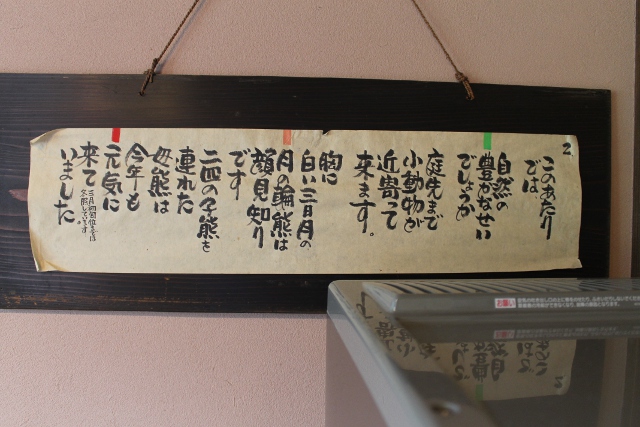 2
このあたり
では
自然の
豊かなせい
でしょうか
庭先まで
小動物が
近寄って
来ます。
胸に
白い三日月の
月の輪熊は
顔見知り
です
二匹の子熊を
連れた
母熊は
今年も
元気に
来て
いました。
お願い